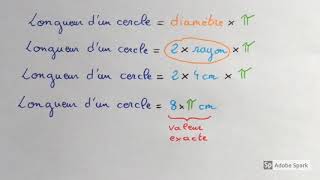 Longueur d'un cercle = diamètre × π
Longueur d'un cercle = 2 × rayon × π
Longueur d'un cercle = 2 × 4 cm × π
Longueur d'un cercle = 8 × π cm
valeur
exacte
Sp Adobe Spark